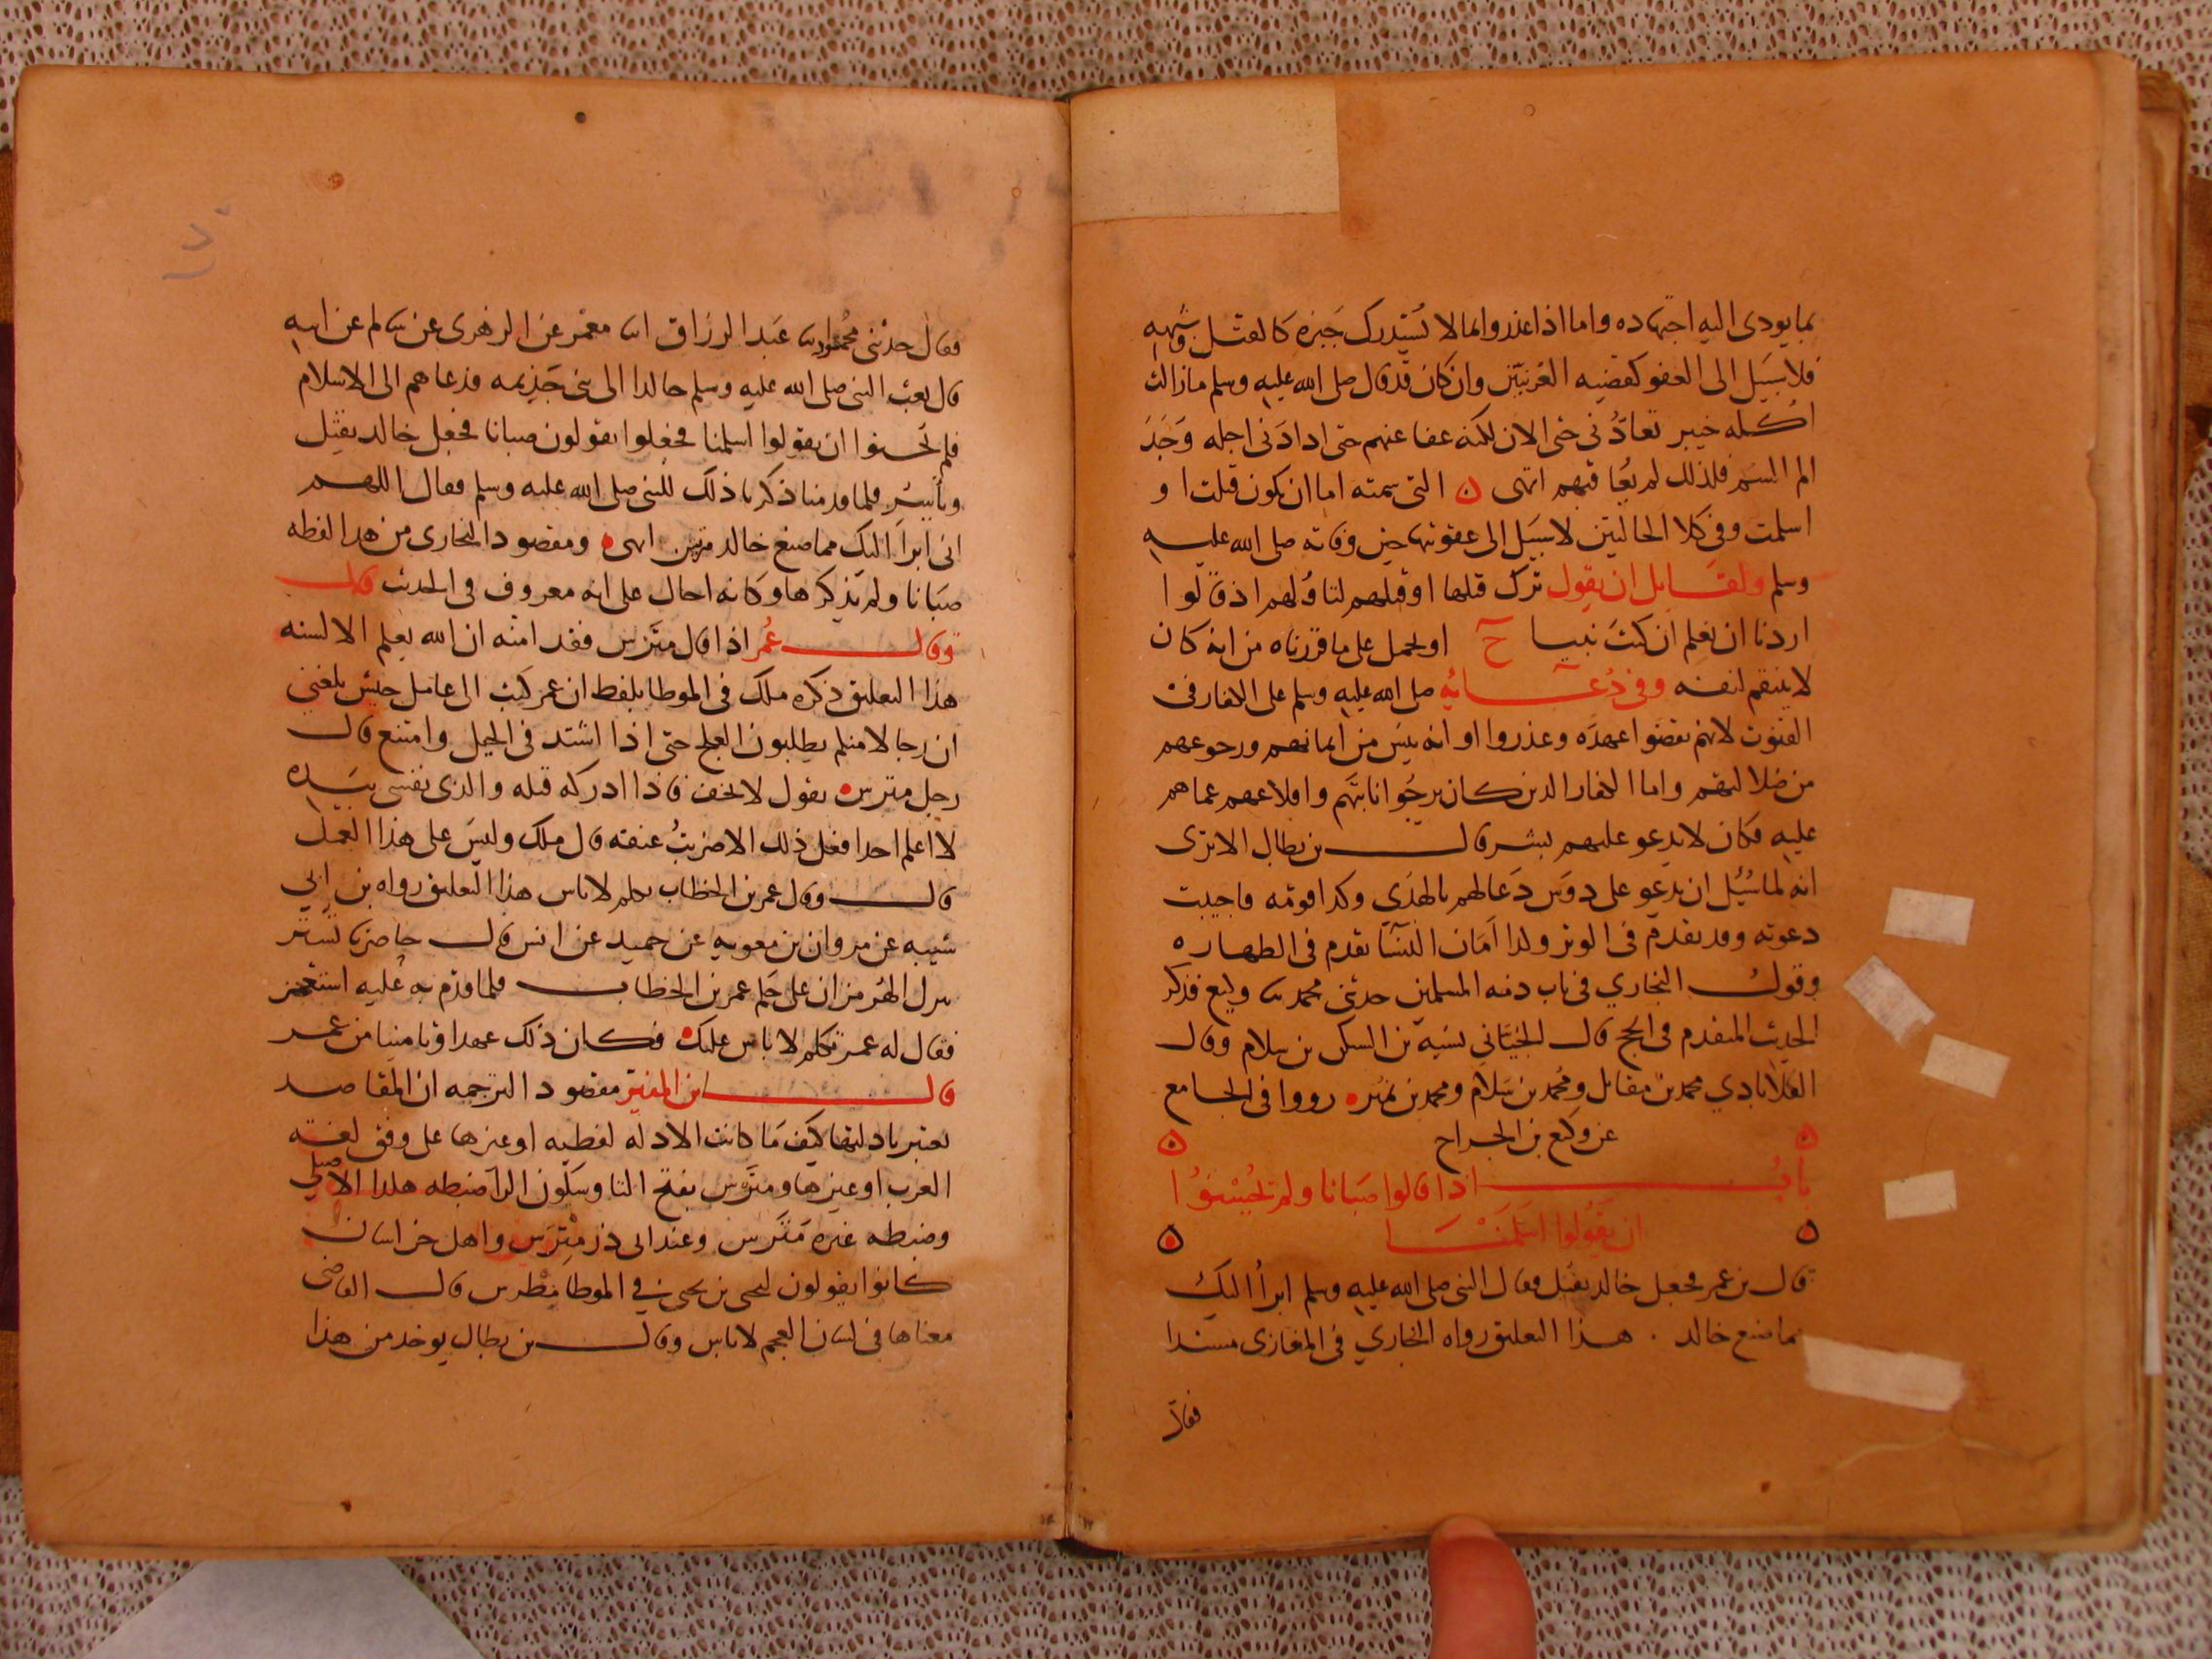 بما يودى اليه اجتهاده واما اذا غدروا بما لا يستدرك جبره كالقتل وشبهه
فلا سبيل الى العفو كقضيه العرنيين وان كان قد قال صلى الله عليه وسلم مازالت
اكله خيبر تعادنى حتى الان لكنه عفا عنهم حتى اذا دنى اجله وجد
الم السم فلذلك لم يعاقبهم انتهى ن التى سمته اما ان يكون قتلت او
اسلمت وفى كلا الحالتين لا سبيل الى عقوبتها حين وفاته صلى الله عليه
وسلم ولقايل ان يقول ترك قتلها او قتلهم لتاولهم اذ قالوا
اردنا ان نعلم ان كنت نبيا ح او يحمل على ما قررناه من انه كان
لا ينتقم لنفسه وفى دعائه صلى الله عليه وسلم على الكفار فى
القنوت لانهم نقضوا عهده وغدروا او انه يئس من ايمانهم ورجوعهم
من ضلالتهم واما الكفار الذين كان يرجوا انابتهم واقلاعهم عما هم
عليه فكان لا يدعو عليهم بشر قال بن بطال الا ترى
انه لما سئل ان يدعو على دوس دعا لهم بالهدى وكذا قومه فاجيبت
دعوته وقد تقدم فى الوتر ولذا امان النسا تقدم فى الطهاره
وقول البخاري فى باب ذمه المسلمين حدثنى محمد ثنا وكيع فذكر
الحديث المتقدم فى الحج قال الجياني نسبه بن السكن بن سلام وقال
الكلاباذي محمد بن مقاتل ومحمد بن سلام ومحمد بن نمير ه رووا فى الجامع
عن وكيع بن الجراح
باب اذا قالوا صبانا ولم يحسنوا
ان يقولوا اسلمنا
قال بن عمر فجعل خالد يقتل فقال النبى صلى الله عليه وسلم ابرأ اليك
مما صنع خالد . هذا التعليق رواه البخاري فى المغازى مسندا
فقال
١٧٠
فقال حدثنى محمود ثنا عبد الرزاق انا معمر عن الزهرى عن سالم عن ابيه
قال بعث النبى صلى الله عليه وسلم خالدا الى بنى جذيمه فدعاهم الى الاسلام
فلم يحسنوا ان يقولوا اسلمنا فجعلوا يقولون صبانا فجعل خالد يقتل
ويأسر فلما قدمنا ذكرنا ذلك للنبى صلى الله عليه وسلم فقال اللهم
انى ابرأ اليك مما صنع خالد مرتين انتهى ه ومقصود البخارى من هذا لفظه
صبانا ولم يذكرها وكانه احال على انه معروف فى الحديث قال
وقال عمر اذا قال مترس فقد امنه ان الله يعلم الالسنه
هذا التعليق ذكره ملك فى الموطا بلفظ ان عمر كتب الى عامل جيش بلغنى
ان رجالا منكم يطلبون العلج حتى اذا اشتد فى الجبل وامتنع قال
رجل مترس ه يقول لا تخف فاذا ادركه قتله والذى نفسى بيده
لا اعلم احدا فعل ذلك الا ضربت عنقه قال ملك وليس على هذا العمل
قال وقال عمر بن الخطاب تكلم لا باس هذا التعليق رواه بن ابي
شيبه عن مروان بن معويه عن حميد عن انس قال حاصرنا تستر
فنزل الهرمزان على حكم عمر بن الخطاب فلما قدم به عليه استعجم
فقال له عمر تكلم لا باس عليك ه فكان ذلك عهدا وتامينا من عمر
قال ابن المنير مقصود الترجمه ان المقاصد
تعتبر بادلتها كيف ما كانت الادله لفظيه او غيرها على وفق لغه
العرب او غيرها ومترس بفتح التا وسكون الرا ضبطه هكذا الاصيلي
وضبطه غيره مترس وعند ابى ذر مترس واهل خراسان
كانوا يقولون ليحيى بن يحيى فى الموطا مطرس قال القاضى
معناها فى لسان العجم لا باس وقال بن بطال يوخذ من هذا